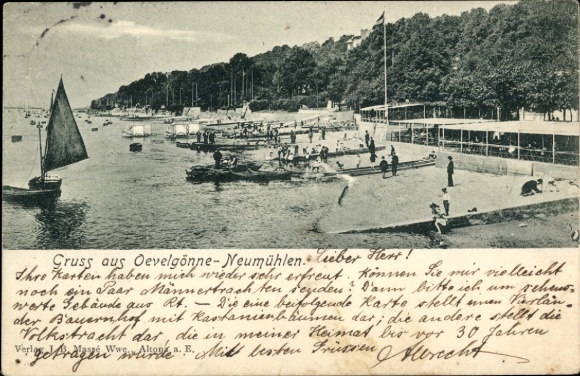 Gruss aus Oevelgönne-Neumühlen.
Lieber Herr!
Ihre Karten haben mich wieder sehr erfreut. Können Sie mir vielleicht
noch ein Paar Männertrachten senden? Dann bitte ich um sehens-
werte Gebäude aus Rt. – Die eine beifolgende Karte stellt einen Vierlän-
der Bauernhof mit Kastanienbäumen dar; die andere stellt die
Volkstracht dar, die in meiner Heimat bis vor 30 Jahren
getragen wurde. Mit besten Grüssen Albrecht
Verlag J. B. Massé Wwe., Altona a. E.